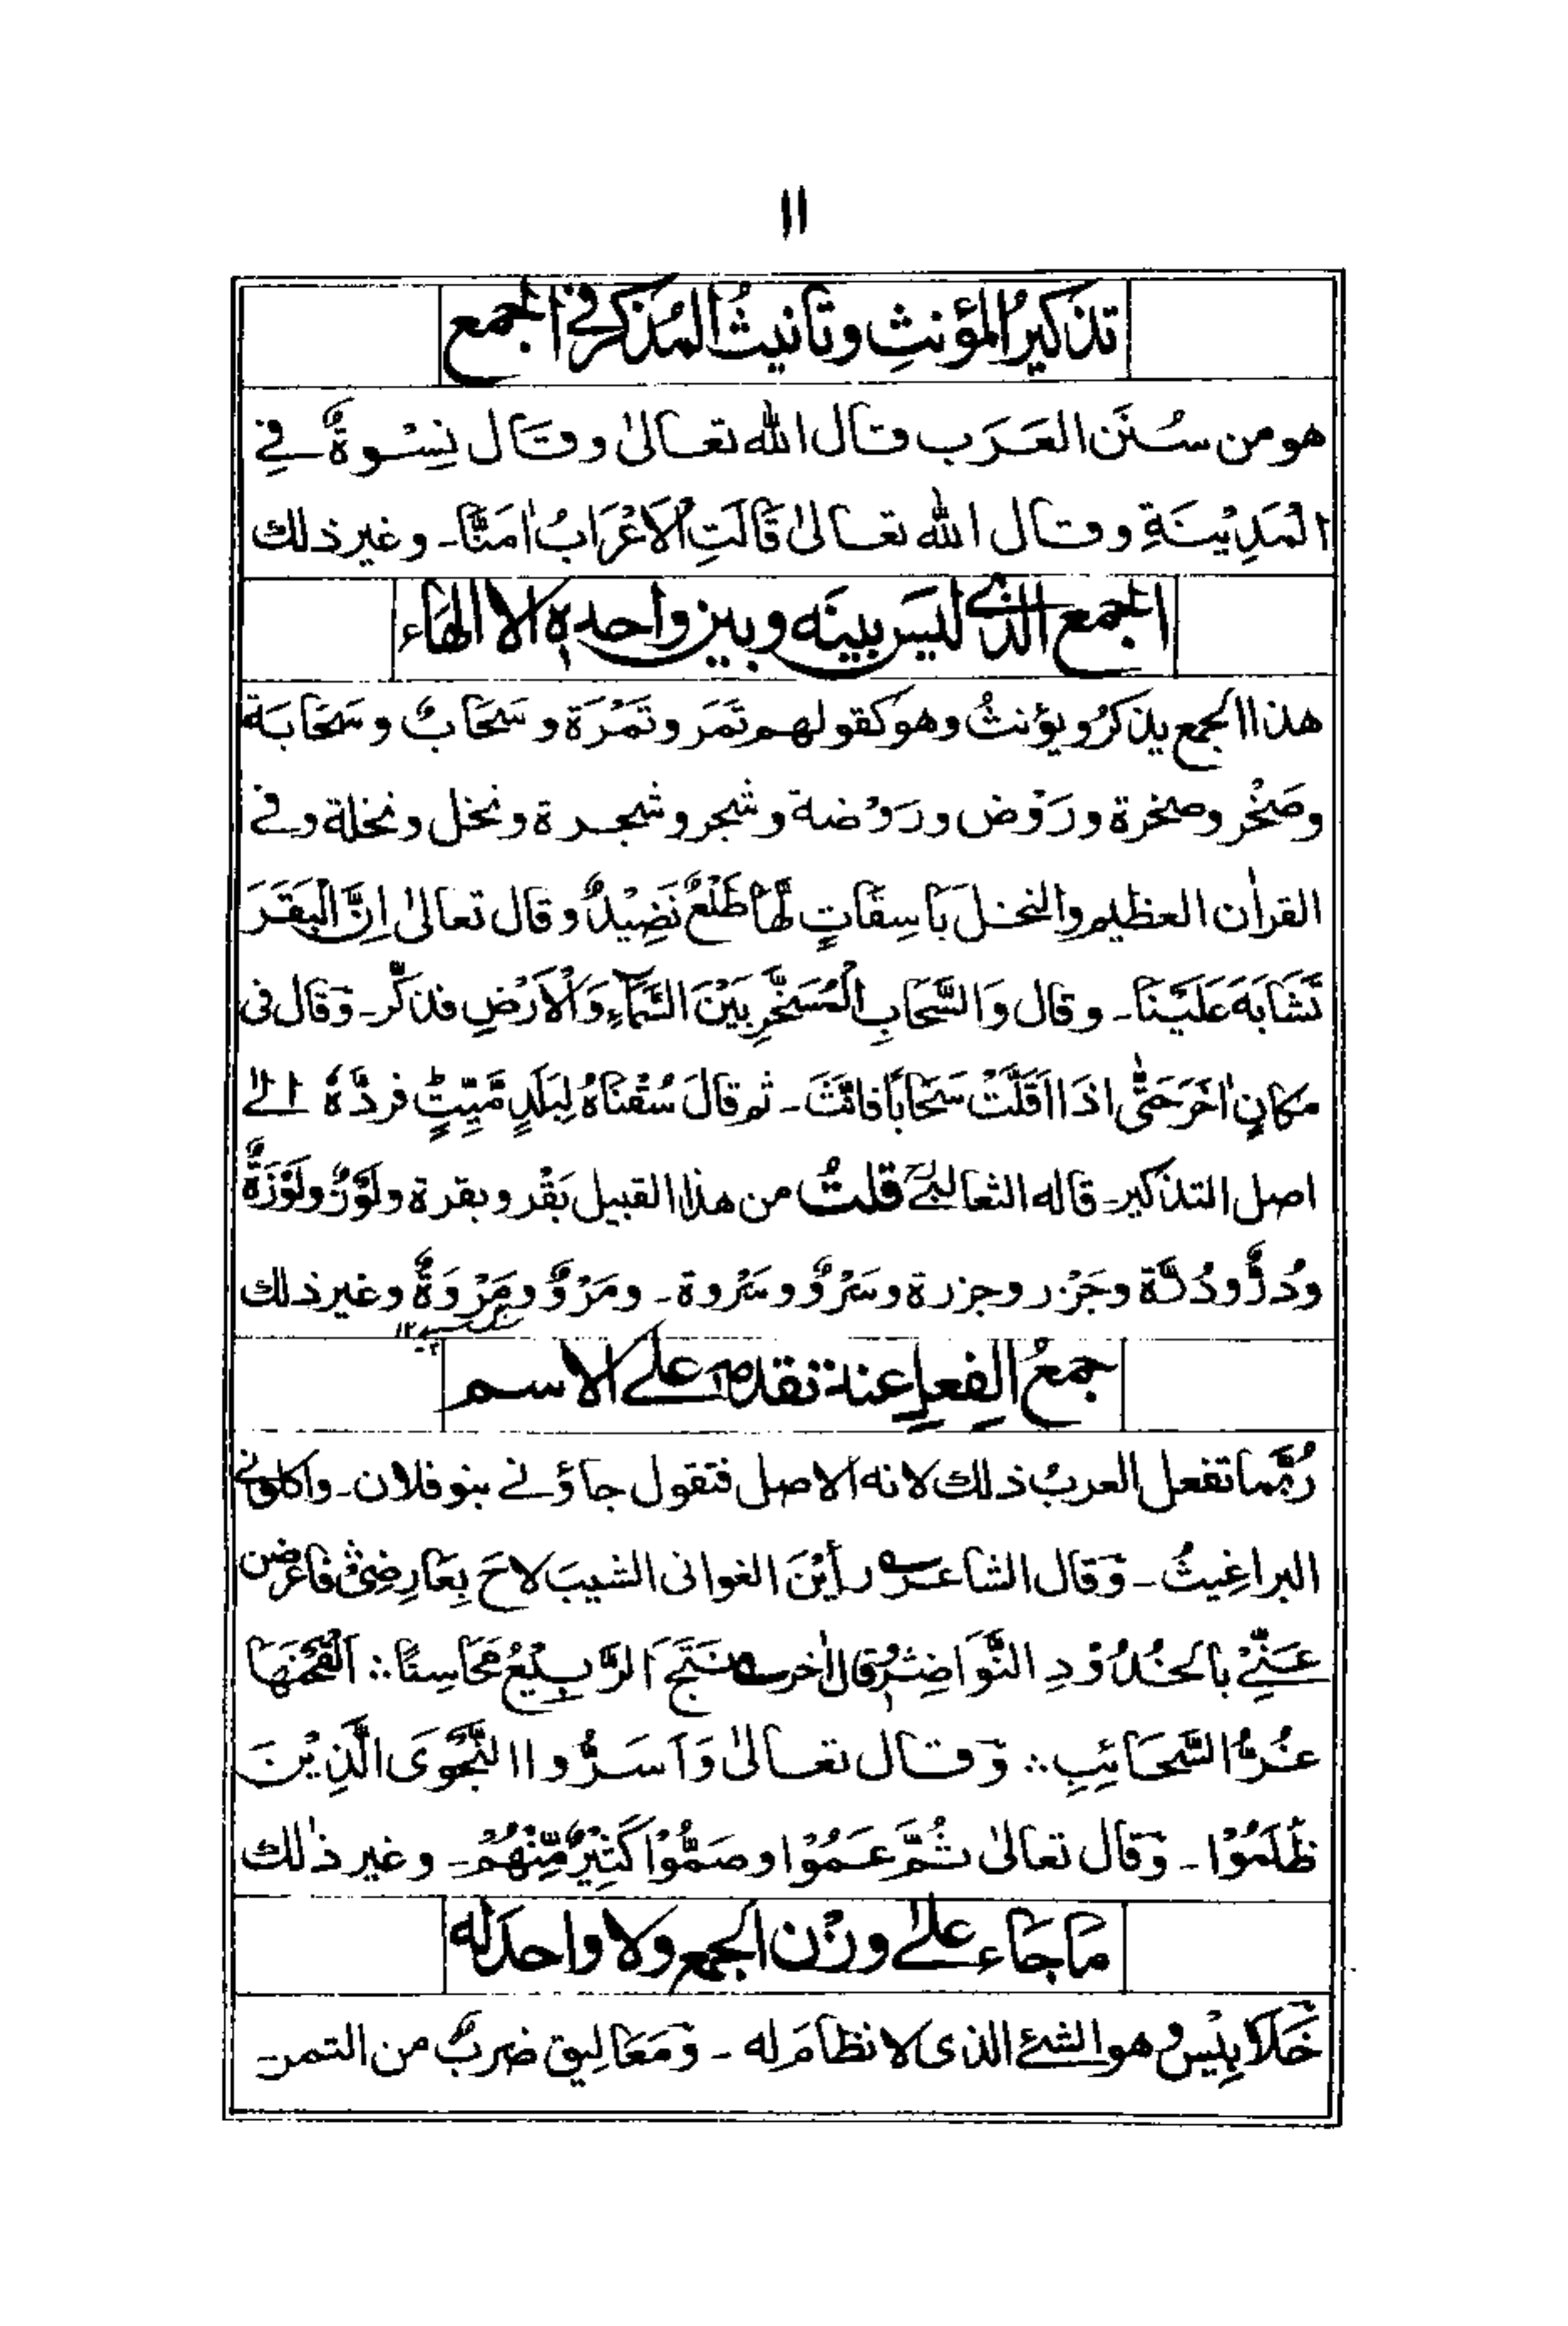 ١١
تذكيرُ المؤنثِ وتأنيثُ المُذكر في الجمع
هو من سُنَن العَرَب قال الله تعالىٰ وقَال نِسْوةٌ في
الْمَدِيْنَةِ وقال الله تعالىٰ قَالَتِ الْاَعْرَابُ اٰمَنَّا۔ وغير ذلك
الجمع الذي ليَس بينَه وبين واحدهٖ الا الهَاء
هذا الجمع يذكرُ ويؤنثُ وهو كقولهم تَمَر وتَمْرَة وسَحَابٌ وسَحَابَة
وصَخْر وصخرة ورَوْض ورَوْضة وشجر وشجرة ونخل ونخلة وفي
القراٰن العظيم والنخلَ بَاسِقَاتٍ لَّهَا طَلْعٌ نَضِيْدٌ وقال تعالىٰ اِنَّ الْبَقَرَ
تَشَابَهَ عَلَيْنَا۔ وقال وَالسَّحَابِ الْمُسَخَّرِ بَيْنَ السَّمَاءِ وَالْاَرْضِ فذكَّر۔ وَقال فى
مكانٍ اٰخَرَ حَتّٰى اذَا اَقَلَّتْ سَحَابًا فانَّثَ۔ ثم قالَ سُقْنَاهُ لِبَلَدٍ مَّيِّتٍ فردَّهٗ الى
اصل التذكير۔ قاله الثعالبيؒ قلتُ من هذا القبيل بَقْر وبقرة ولَوْزٌ ولَوْزَةٌ
ودُرٌّ ودُرَّة وجَزْر وجزرة وسَرْوٌ وسَرْوة۔ ومَرْوٌ ومَرْوَةٌ وغير ذلك
جمعُ الفِعلِ عند تقدمه على الاسم
رُبَّما تفعل العربُ ذلك لانه الاصل فتقول جاؤني بنو فلان۔ واكلوني
البراغيثُ۔ وَقال الشاعر رأيْنَ الغوانى الشيبَ لاحَ بِعَارِضِىْ فاعرضن
عَنِّيْ بالخُدُوْدِ النَّوَاضِرِ وقال اٰخر نَتَجَ الرَّبِيْعُ مَحَاسِنًا ∴ اَلْقَحْنَهَا
غُرُّ السَّحَائِبِ ∴ وَقال تعالىٰ وَاَسَرُّوا النَّجْوَى الَّذِيْنَ
ظَلَمُوْا۔ وَقال تعالىٰ ثُمَّ عَمُوْا وصَمُّوْا كَثِيْرٌ مِّنْهُمْ۔ وغير ذٰلك
مَا جَاء علىٰ وزْن الجمع ولا واحدَ له
خَلَابِيْسُ هو الشئ الذى لا نظامَ له۔ وَمَعَاليق ضربٌ من التمر۔